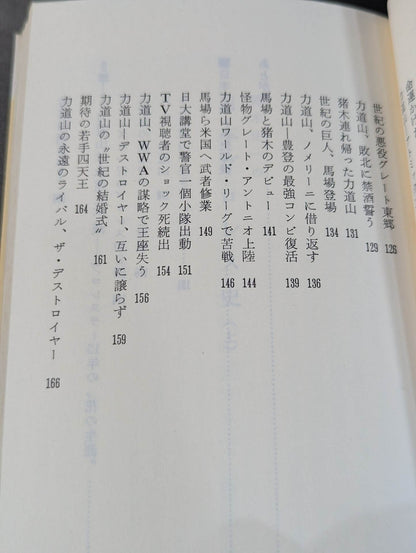 世紀の悪役グレート東郷 126
力道山、敗北に禁酒誓う 129
猪木連れ帰った力道山 131
世紀の巨人、馬場登場 134
力道山、ノメリーニに借り返す 136
力道山―豊登の最強コンビ復活 139
馬場と猪木のデビュー 141
怪物グレート・アントニオ上陸 144
力道山ワールド・リーグで苦戦 146
馬場ら米国へ武者修業 149
日大講堂で警官一個小隊出動 151
TV視聴者のショック死続出 154
力道山、WWAの謀略で王座失う 156
力道山―デストロイヤー、互いに譲らず 159
力道山の〝世紀の結婚式〟 161
期待の若手四天王 164
力道山の永遠のライバル、ザ・デストロイヤー 166